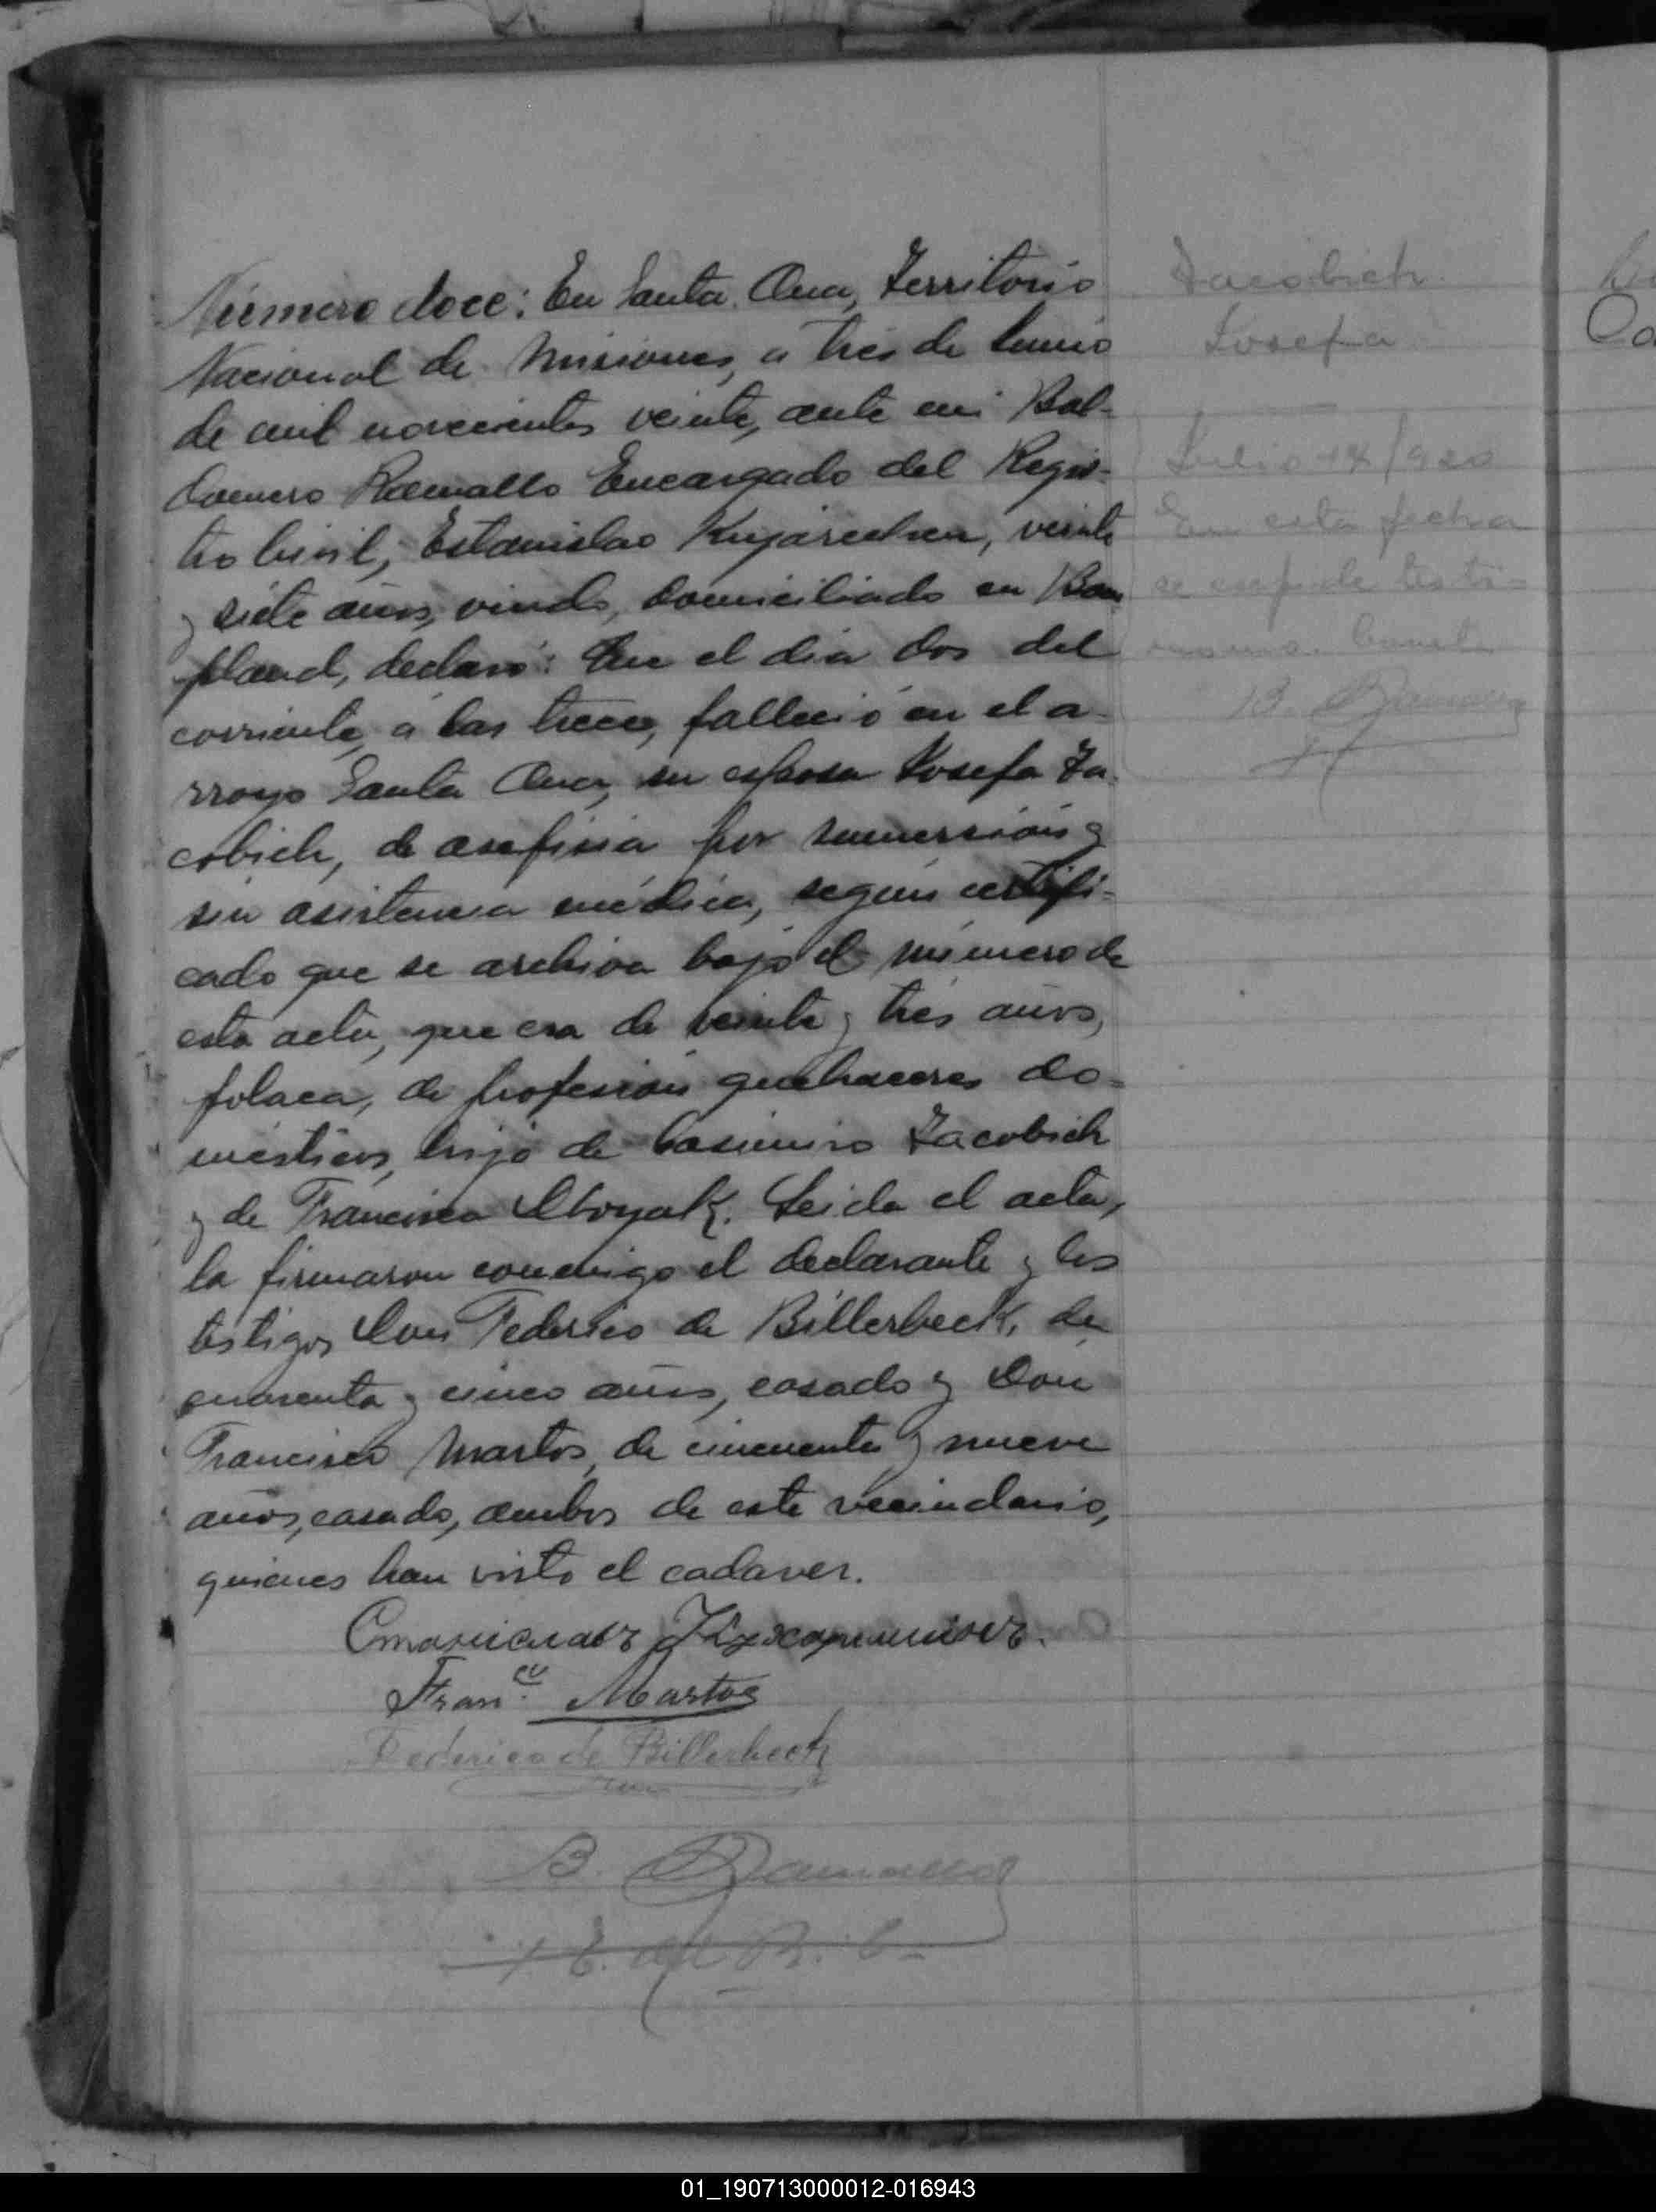 Número doce: En Santa Ana, Territorio
Nacional de Misiones, a tres de Junio
de mil novecientos veinte, ante mi Bal-
domero Ramallo Encargado del Regis-
tro Civil, Estanislao, veinte
y siete años, viudo, domiciliado en Bon
pland, declaró: Que el dia dos del
corriente, á las trece, falleció en el a-
rroyo Santa Ana, su esposa Josefa Ja-
cobich, de asfixia por sumersión y
sin asistencia médica, según certifi-
cado que se archiva bajo el número de
esta acta, que era de veinte y tres años,
polaca, de profesión quehaceres do-
mésticos, hija de Casimiro Jacobich
y de Francisca. Leida el acta,
la firmaron conmigo el declarante y los
testigos Don Federico de Billerbeck, de
cuarenta y cinco años, casado y Don
Francisco Martos, de cincuenta y nueve
años, casado, ambos de este vecindario,
quienes han visto el cadaver.
Franco. Martos
Federico de Billerbeck
B. Ramallo
E. del R. C.
Jacobich
Josefa
Julio 14/920
En esta fecha
se expide testi-
monio. Conste
B. Ramallo